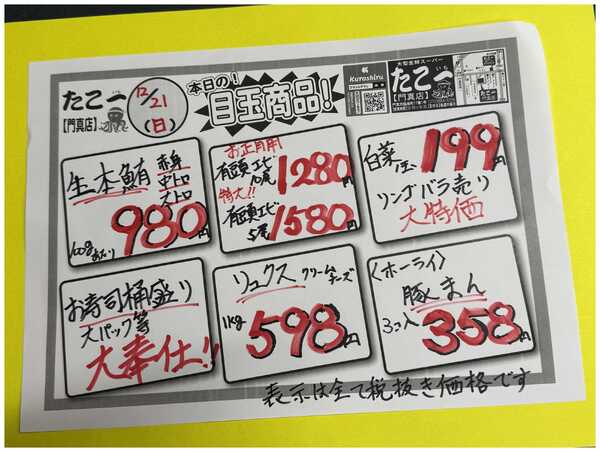 たこ一
【門真店】
12/21
(日)
本日の!
目玉商品!
Kurashiru
大型生鮮スーパー
たこ一
いち
【門真店】
生本鮪
赤身
中トロ
大トロ
100gあたり
980円
お正月用
有頭エビ
10尾
1280円
特大!!
有頭エビ
5尾
1580円
白菜
199円
リンゴバラ売り
大特価
お寿司桶盛り
大パック等
大奉仕!!
リュクス クリームチーズ
1kg 598円
〈ホーライ〉
豚まん
3コ入 358円
表示は全て税抜き価格です